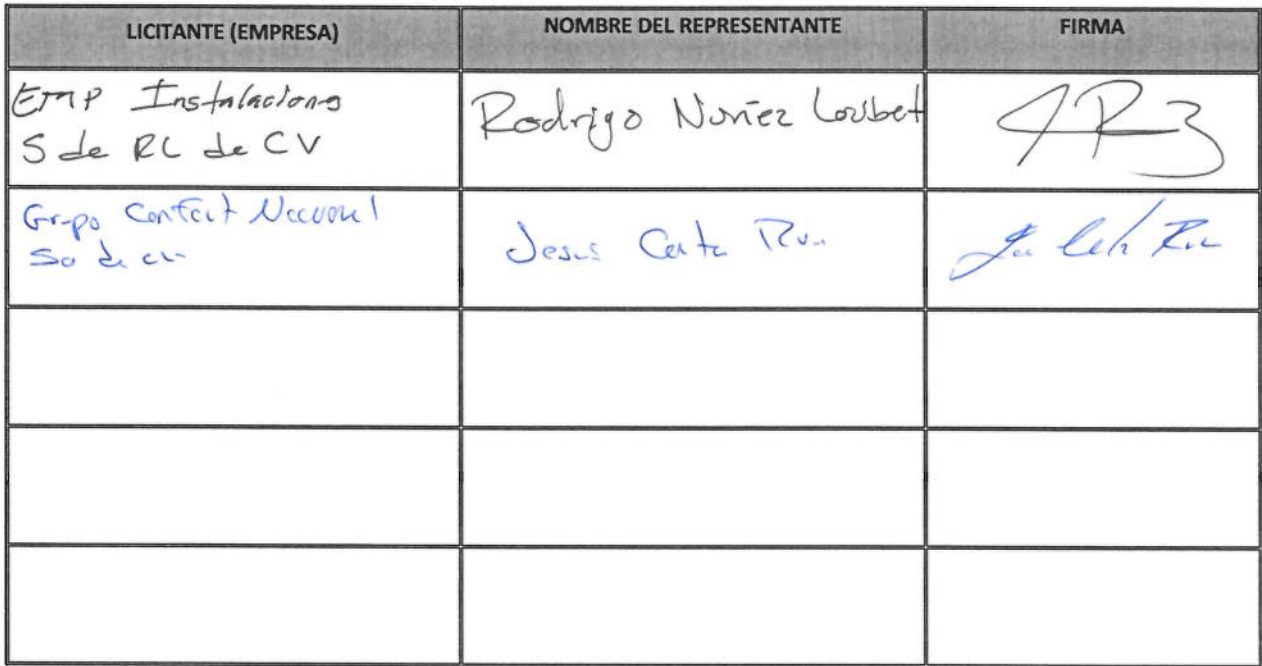 LICITANTE (EMPRESA)
NOMBRE DEL REPRESENTANTE
FIRMA
EMP Instalaciones
S de RL de CV
Rodrigo Nuñez Loubet
Grupo Confort Nacional
Sa de cv
Jesus